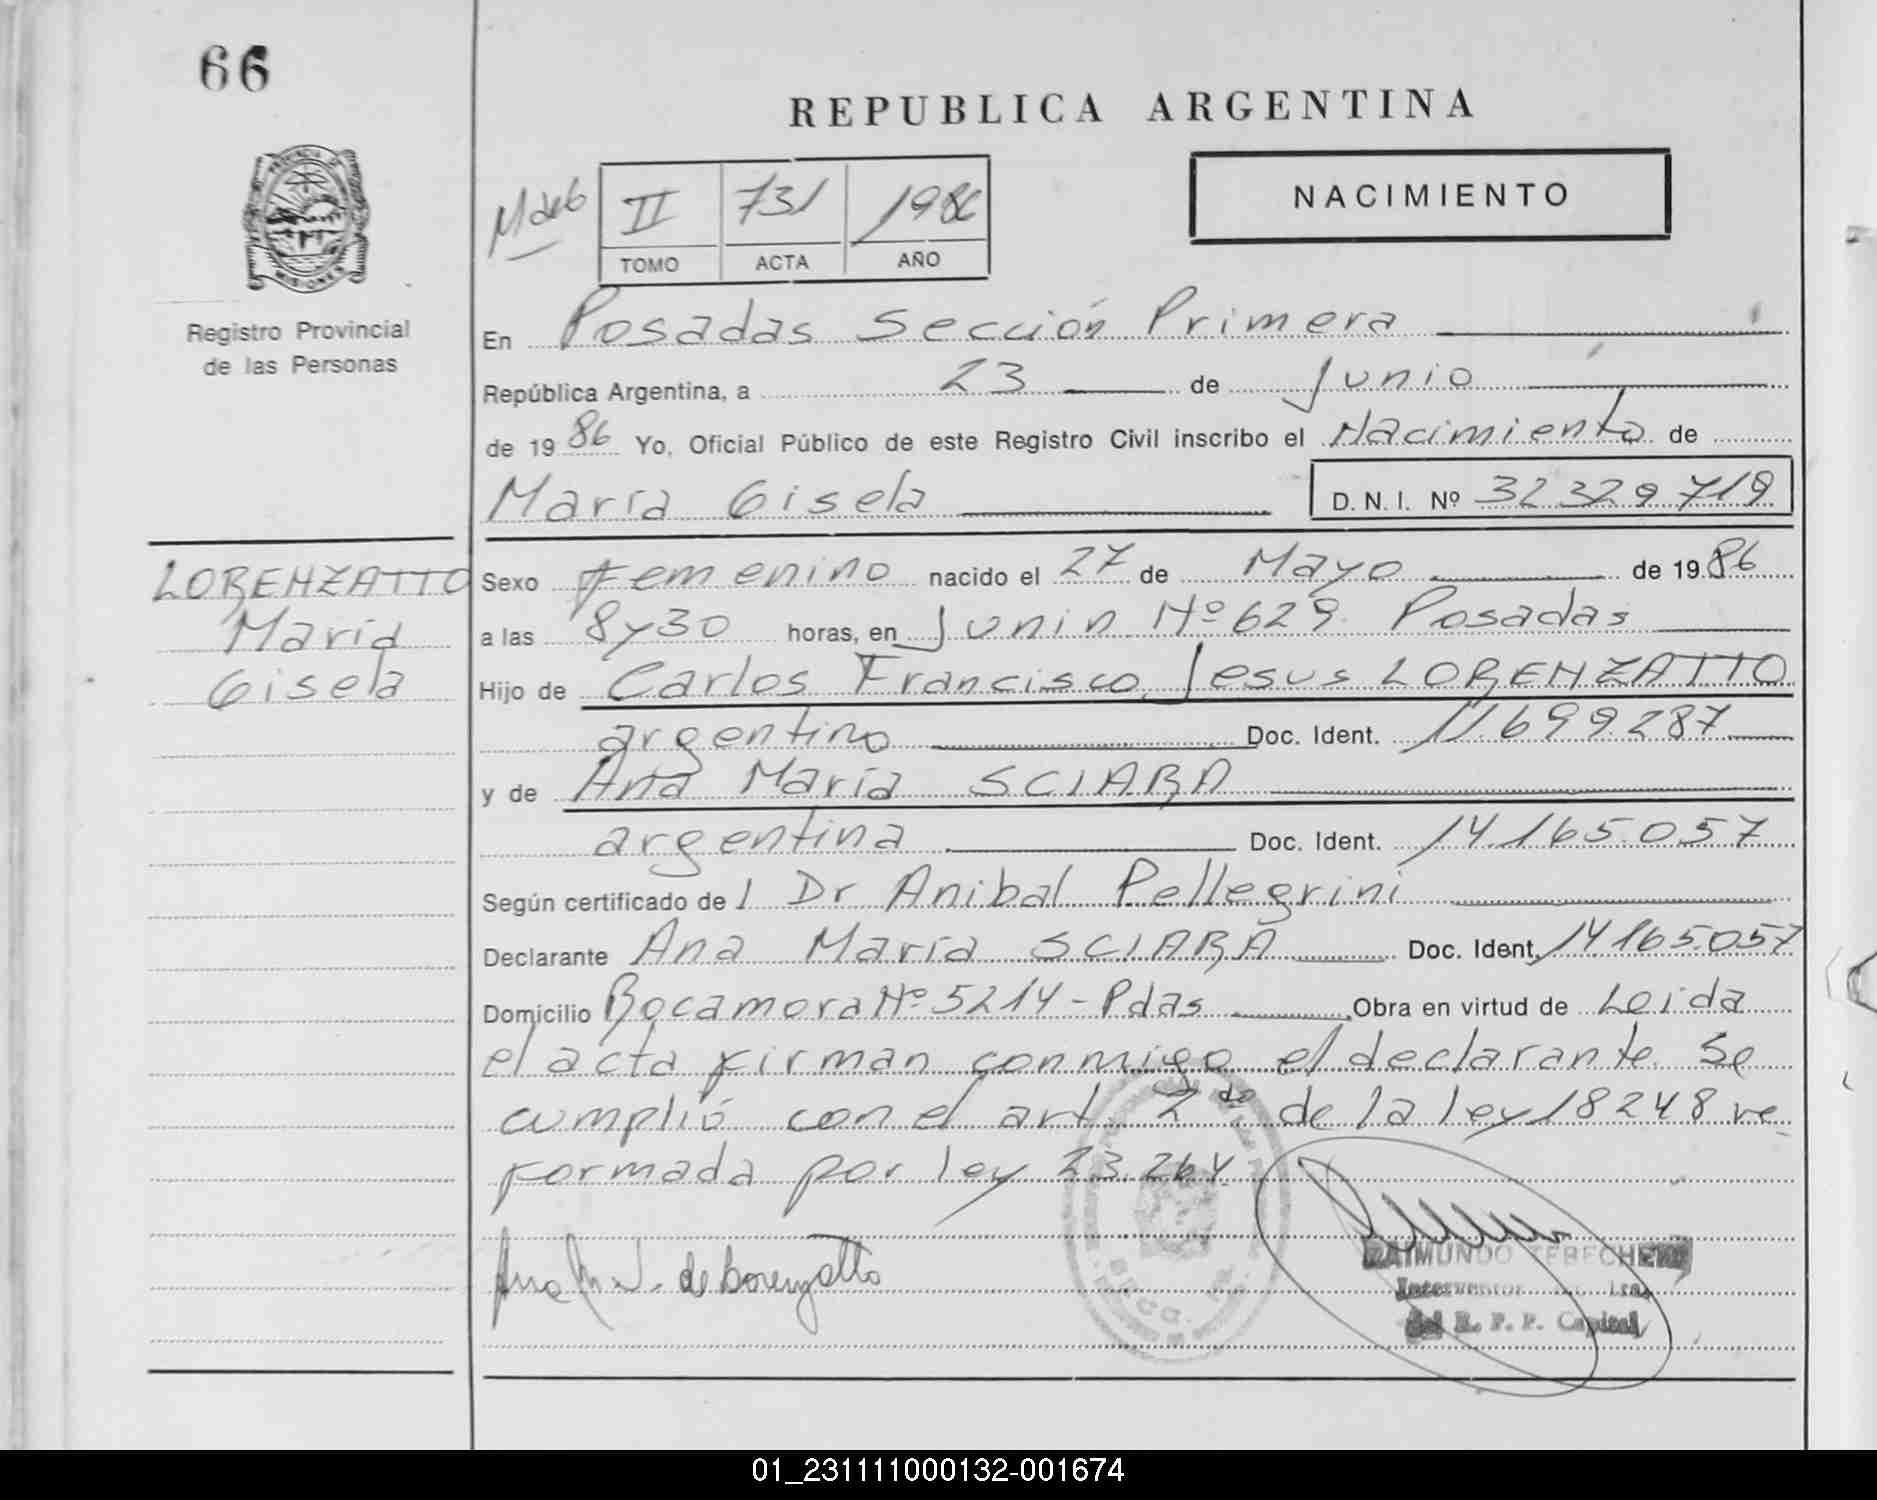 66
REPUBLICA ARGENTINA
PROVINCIA DE
MISIONES
Registro Provincial
de las Personas
II 731 1986
TOMO ACTA AÑO
NACIMIENTO
En Posadas Sección Primera
República Argentina, a 23 de Junio
de 19 86 Yo, Oficial Público de este Registro Civil inscribo el Nacimiento de
María Gisela D.N.I. Nº 32329.719
LORENZATTO
María
Gisela
Sexo Femenino nacido el 27 de Mayo de 19 86
a las 8y30 horas, en Junin Nº 629. Posadas
Hijo de Carlos Francisco Jesus LORENZATTO
argentino Doc. Ident. 11.699.287
y de Ana María SCIARA
argentina Doc. Ident. 14.165.057
Según certificado del Dr Anibal Pellegrini
Declarante Ana María SCIARA Doc. Ident. 14.165.057
Domicilio Bocamora Nº 5214 - Pdas Obra en virtud de Leida
el acta firman conmigo el declarante. Se
cumplió con el art. 2do de la ley 18248 re
formada por ley 23.264.
de Lorenzatto
RAIMUNDO
Interventor
del R. P. P. Capital
01_231111000132-001674